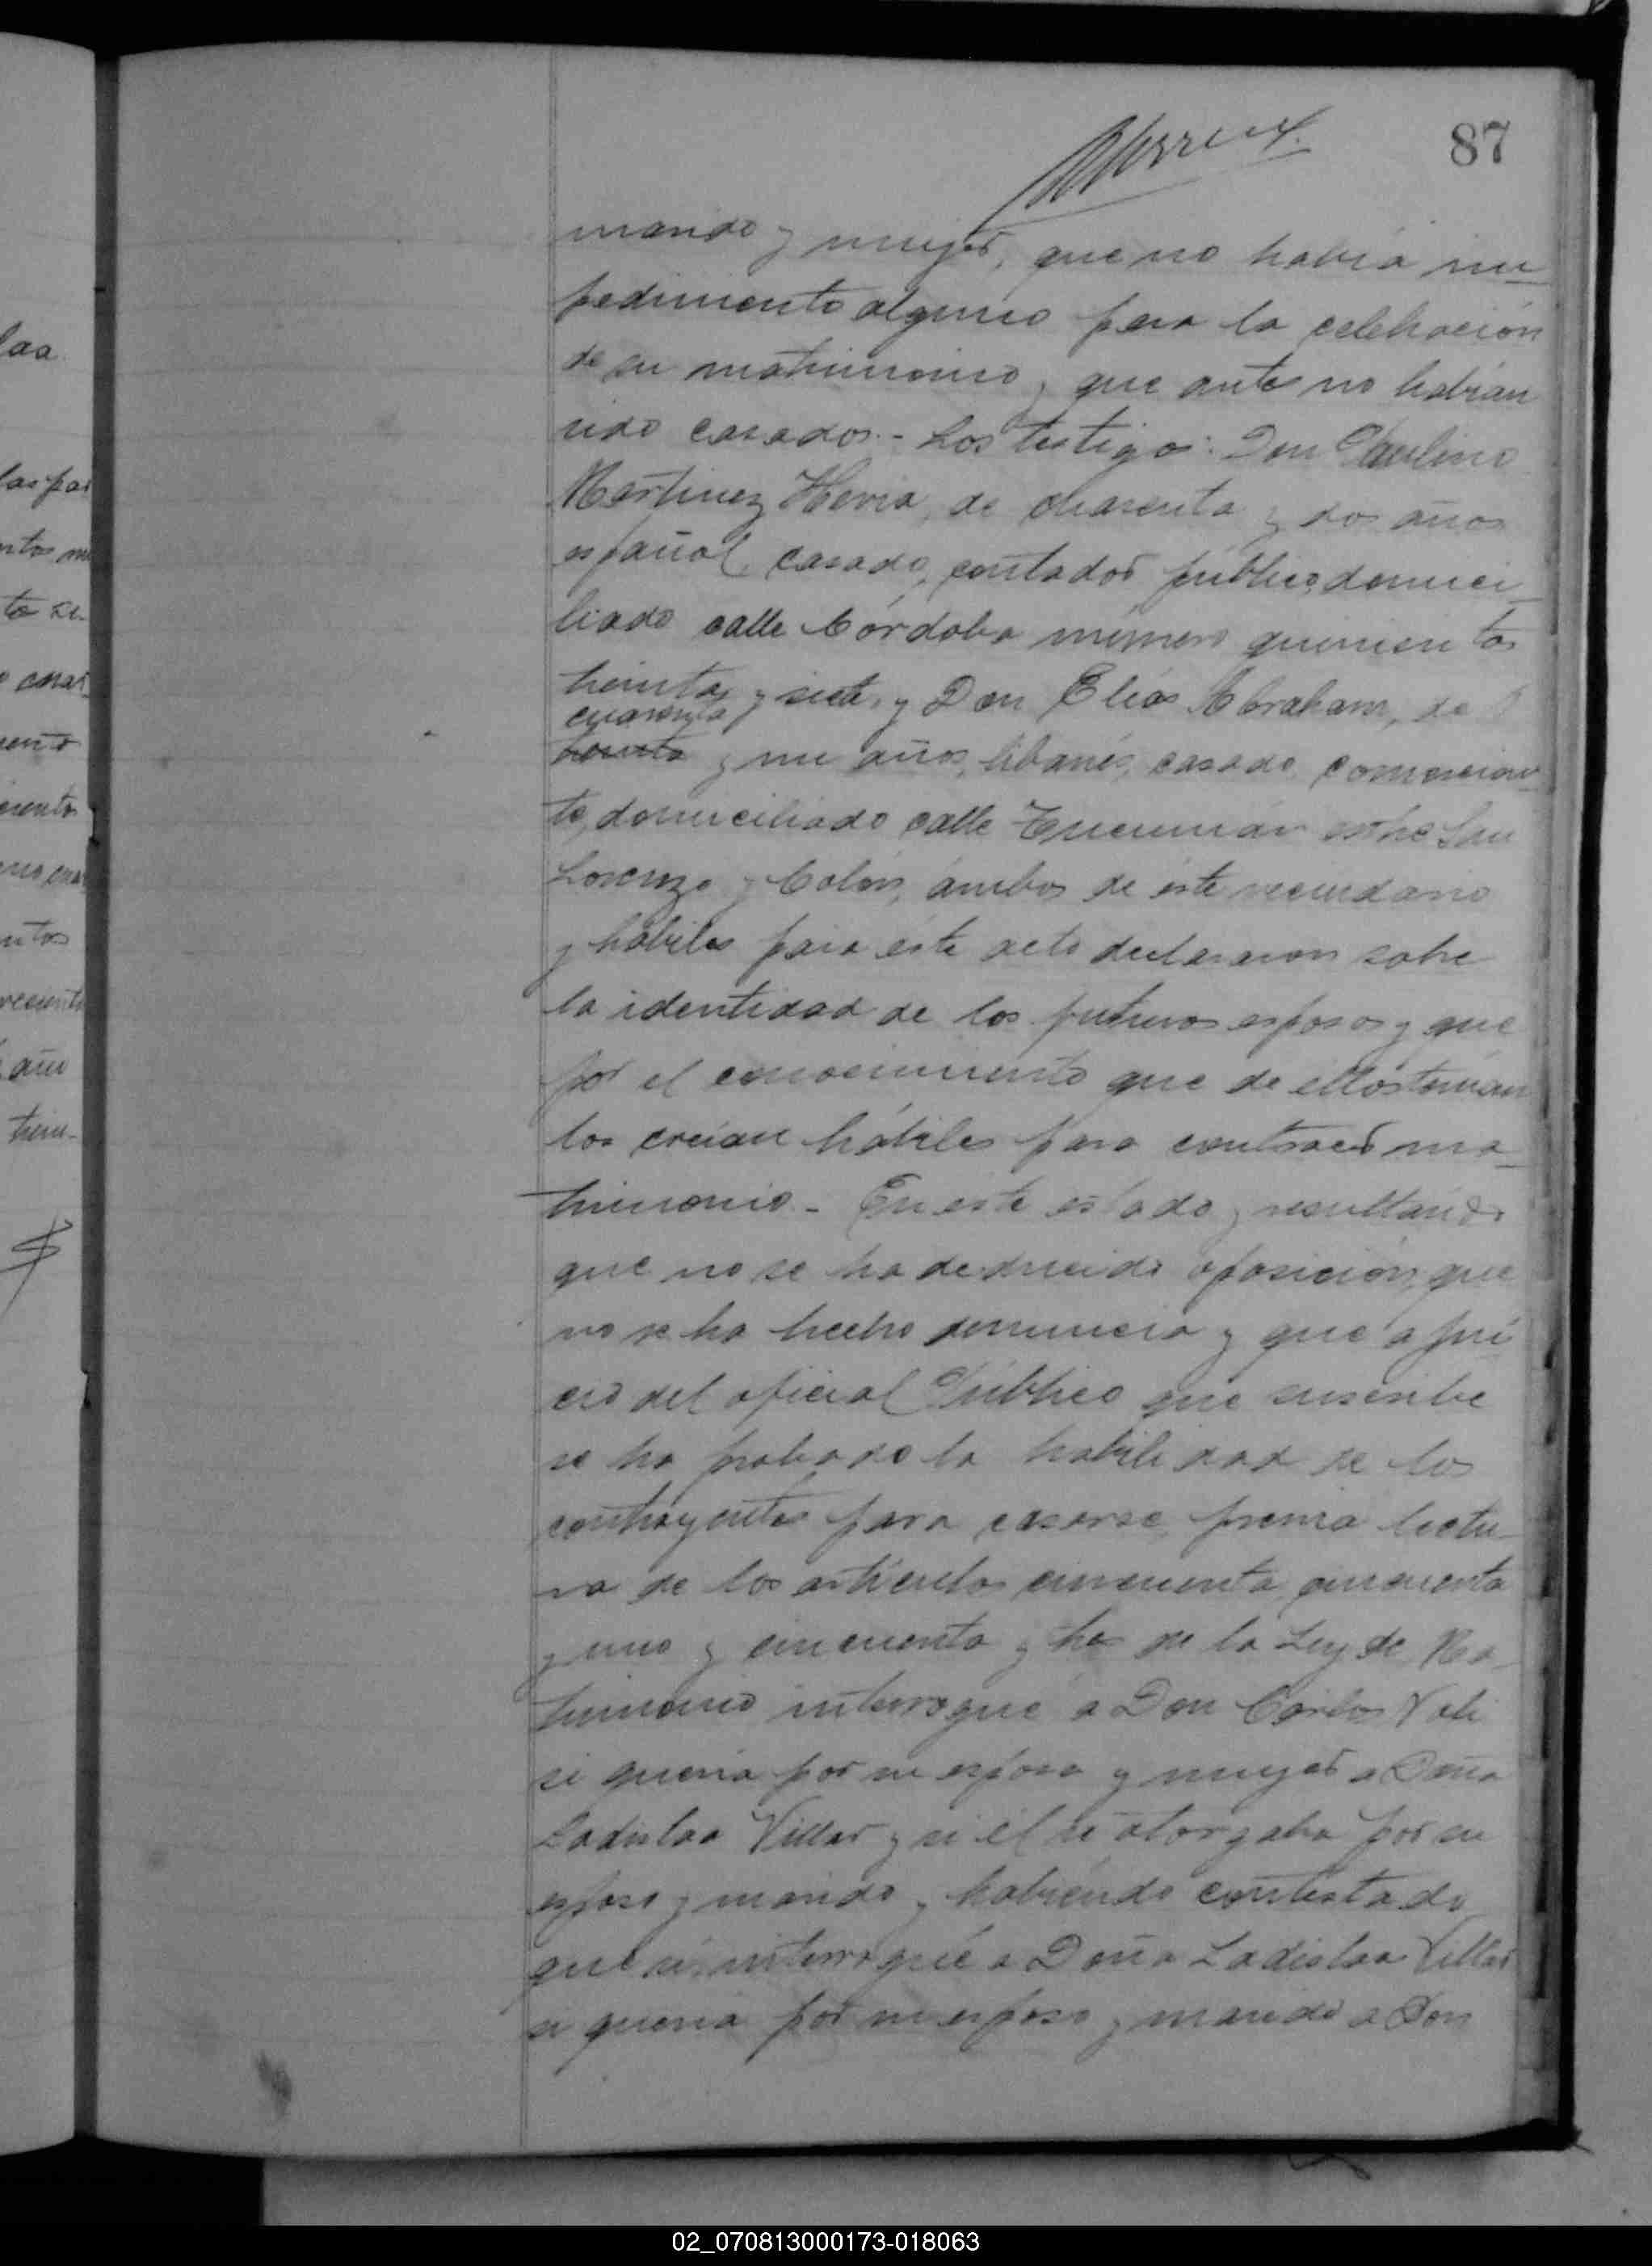 87
marido y mujer, que no había im-
pedimento alguno para la celebración
de su matrimonio y que antes no habían
sido casados.- Los testigos: Don Paulino
Martinez Hevia, de cuarenta y dos años
español, casado, contador público, domici-
liado calle Córdoba número quinientos
treinta y siete, y Don Elías Abraham, de
cuarenta
treinta y un años, libanés, casado, comercian-
te, domiciliado calle Tucumán entre San
Lorenzo y Colón, ámbos de éste vecindario
y hábiles para éste acto declararon sobre
la identidad de los futuros esposos y que
por el conocimiento que de ellos tenían
los creían hábiles para contraer ma-
trimonio.- En este estado y resultando
que no se ha deducido oposición, que
no se ha hecho denuncia y que a jui-
cio del oficial Público que suscribe
se ha probado la habilidad de los
contrayentes para casarse, previa lectu-
ra de los artículos cincuenta, cincuenta
y uno y cincuenta y tres de la Ley de Ma-
trimonio interrogué a Don Carlos
si quería por su esposa y mujer a Doña
Ladislaa Villar y si él se otorgaba por su
esposo y marido y habiéndo contestado
que sí, interrogué a Doña Ladislaa Villar
si quería por su esposo y marido a Don
laa
las pa
ntos
to se
cuar
ento
ciento
ntos
añ
trein-
02_070813000173-018063